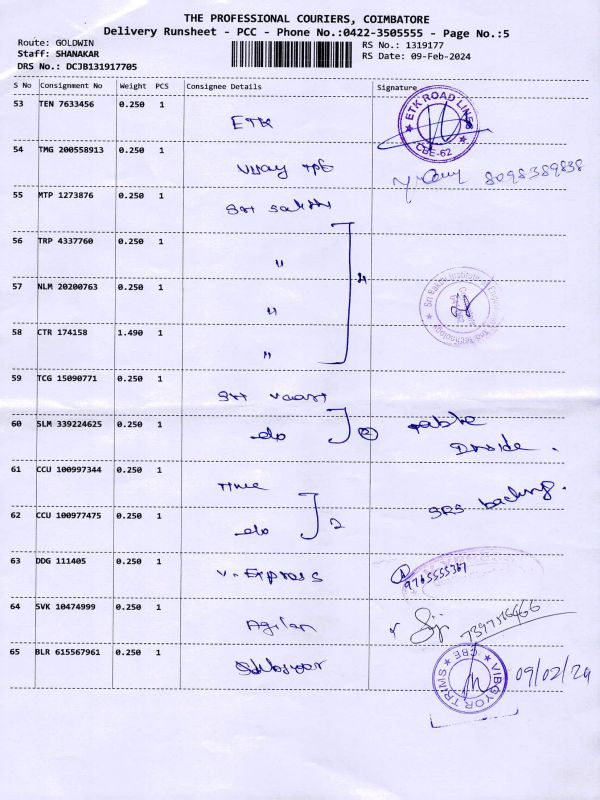 THE PROFESSIONAL COURIERS, COIMBATORE
Delivery Runsheet - PCC - Phone No.:0422-3505555 - Page No.:5
Route: GOLDWIN
Staff: SHANAKAR
DRS No.: DCJB131917705
RS No.: 1319177
RS Date: 09-Feb-2024
S No Consignment No Weight PCS Consignee Details Signature
53 TEN 7633456 0.250 1 ETK
ETK ROAD LINES CBE-62
54 TMG 200558913 0.250 1 Vijay 8098389838
55 MTP 1273876 0.250 1 Sri Sakthi
56 TRP 4337760 0.250 1 " 4
57 NLM 20200763 0.250 1 "
Sri Sakthi Institute
58 CTR 174158 1.490 1 "
59 TCG 15090771 0.250 1 Sri
60 SLM 339224625 0.250 1 do 2 table
Inside.
61 CCU 100997344 0.250 1 Time
62 CCU 100977475 0.250 1 do 2 SRS
63 DDG 111405 0.250 1 V-Express 9765555367
64 SVK 10474999 0.250 1 Agilan
65 BLR 615567961 0.250 1
VIBGYOR TRIMS CBE 09/02/24